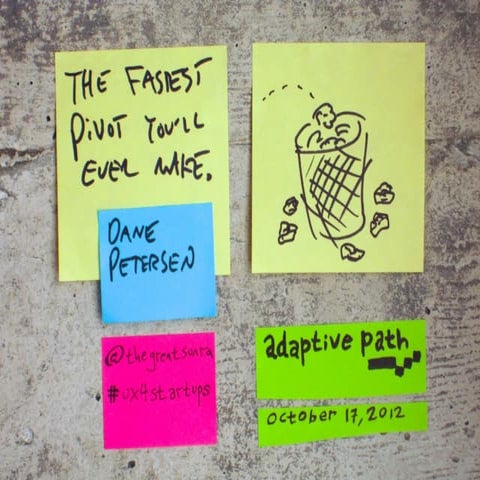 THE FASTEST
PIVOT YOU'LL
EVER MAKE.
DANE
PETERSEN
@thegreatsunra
#ux4startups
adaptive path
october 17, 2012